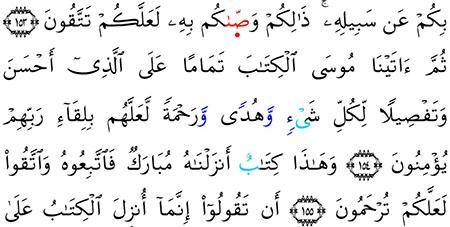 بِكُمْ عَن سَبِيلِهِۦ ۚ ذَٰلِكُمْ وَصَّىٰكُم بِهِۦ لَعَلَّكُمْ تَتَّقُونَ ﴿١٥٣﴾
ثُمَّ ءَاتَيْنَا مُوسَى ٱلْكِتَـٰبَ تَمَامًا عَلَى ٱلَّذِىٓ أَحْسَنَ
وَتَفْصِيلًا لِّكُلِّ شَىْءٍ وَهُدًى وَرَحْمَةً لَّعَلَّهُم بِلِقَآءِ رَبِّهِمْ
يُؤْمِنُونَ ﴿١٥٤﴾ وَهَـٰذَا كِتَـٰبٌ أَنزَلْنَـٰهُ مُبَارَكٌ فَٱتَّبِعُوهُ وَٱتَّقُوا۟
لَعَلَّكُمْ تُرْحَمُونَ ﴿١٥٥﴾ أَن تَقُولُوٓا۟ إِنَّمَآ أُنزِلَ ٱلْكِتَـٰبُ عَلَىٰ